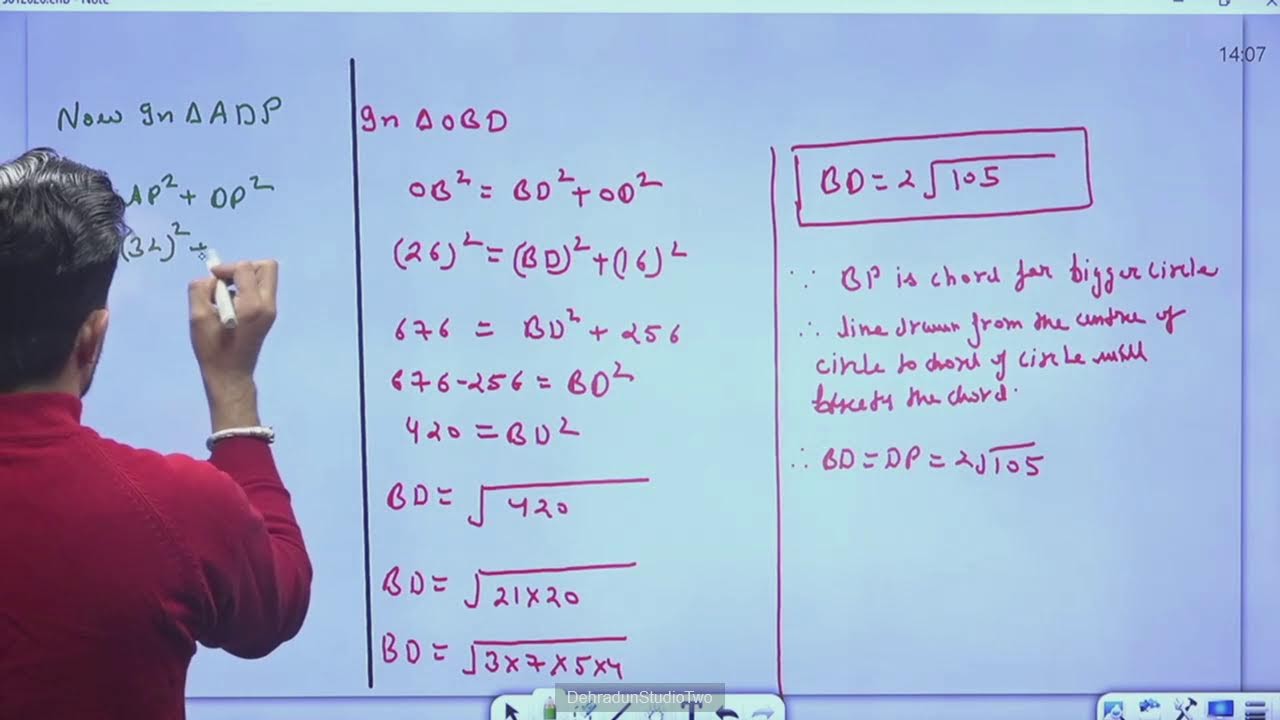 14:07
Now In ΔADP
AP² + DP²
(32)² +
In ΔOBD
OB² = BD² + OD²
(26)² = (BD)² + (16)²
676 = BD² + 256
676-256 = BD²
420 = BD²
BD = √420
BD = √21×20
BD = √3×7×5×4
BD = 2√105
∵ BP is chord for bigger circle
∴ line drawn from the centre of
circle to chord of circle will
bisects the chord.
∴ BD = DP = 2√105
DehradunStudioTwo